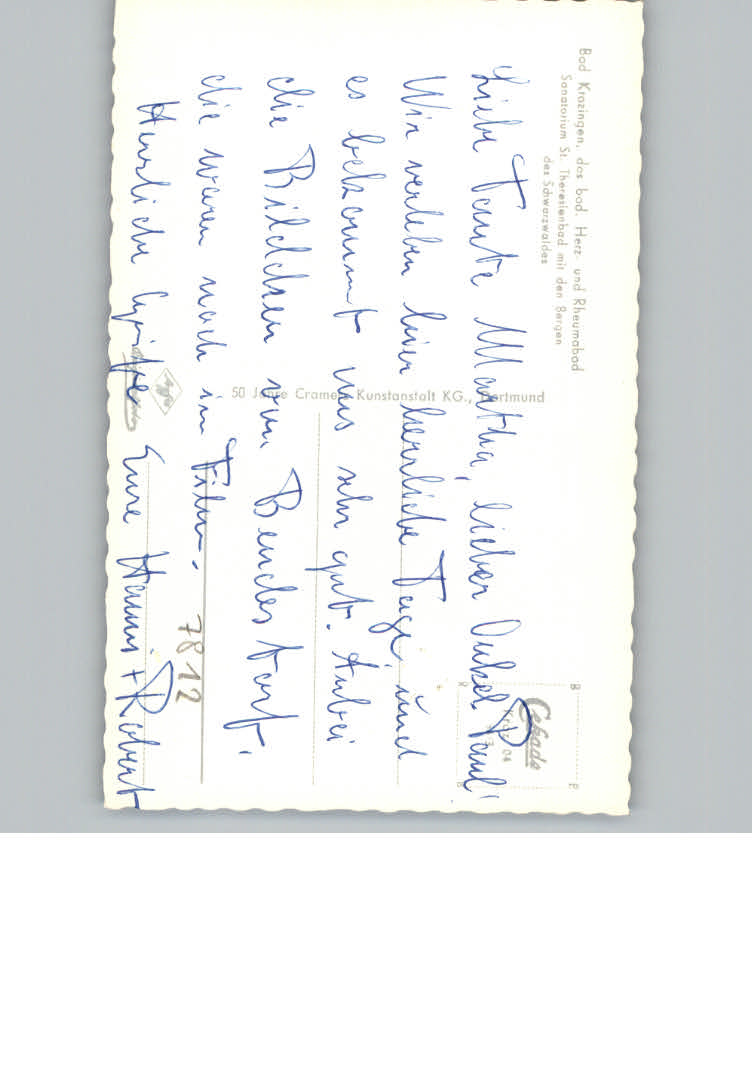 Bad Krozingen, das bad. Herz- und Rheumabad
Sanatorium St. Theresienbad mit den Bergen
des Schwarzwaldes
Liebe Tante Martha, lieber Onkel Paul!
Wir verleben hier herrliche Tage und
es bekommt uns sehr gut. Anbei
die Bildchen von Bendestorf.
die waren noch im Film.
Herzliche Grüße Eure Hanni + Robert
50 Jahre Cramers Kunstanstalt KG., Dortmund
Cekade
7812